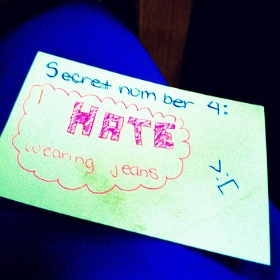 Secret number 4:
I
HATE
wearing jeans.
J.C